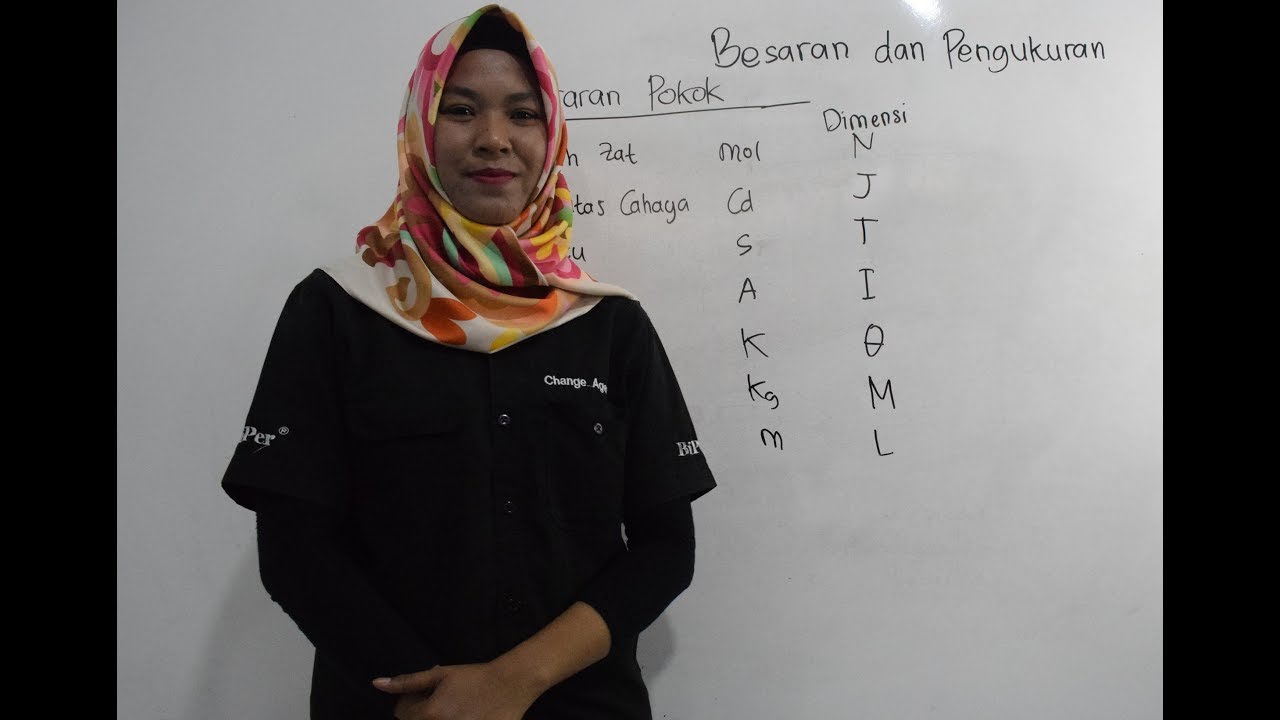 Besaran dan Pengukuran
aran Pokok
Dimensi
h Zat mol N
tas Cahaya Cd J
u S T
A I
K θ
Kg M
m L
Change Age
Per®
BiP